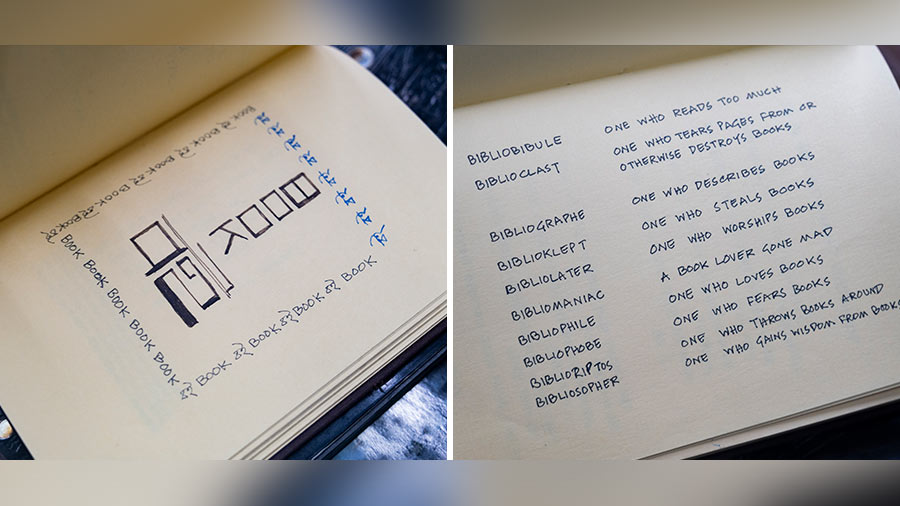 বই BOOK বই BOOK বই BOOK বই BOOK বই BOOK
বই বই বই বই বই বই বই বই
বই BOOK
BOOK BOOK BOOK BOOK BOOK
বই BOOK বই BOOK বই BOOK বই BOOK
BIBLIOBIBULE ONE WHO READS TOO MUCH
BIBLIOCLAST ONE WHO TEARS PAGES FROM OR
OTHERWISE DESTROYS BOOKS
BIBLIOGRAPHE ONE WHO DESCRIBES BOOKS
BIBLIOKLEPT ONE WHO STEALS BOOKS
BIBLIOLATER ONE WHO WORSHIPS BOOKS
BIBLIOMANIAC A BOOK LOVER GONE MAD
BIBLIOPHILE ONE WHO LOVES BOOKS
BIBLIOPHOBE ONE WHO FEARS BOOKS
BIBLIORIPTOS ONE WHO THROWS BOOKS AROUND
BIBLIOSOPHER ONE WHO GAINS WISDOM FROM BOOKS